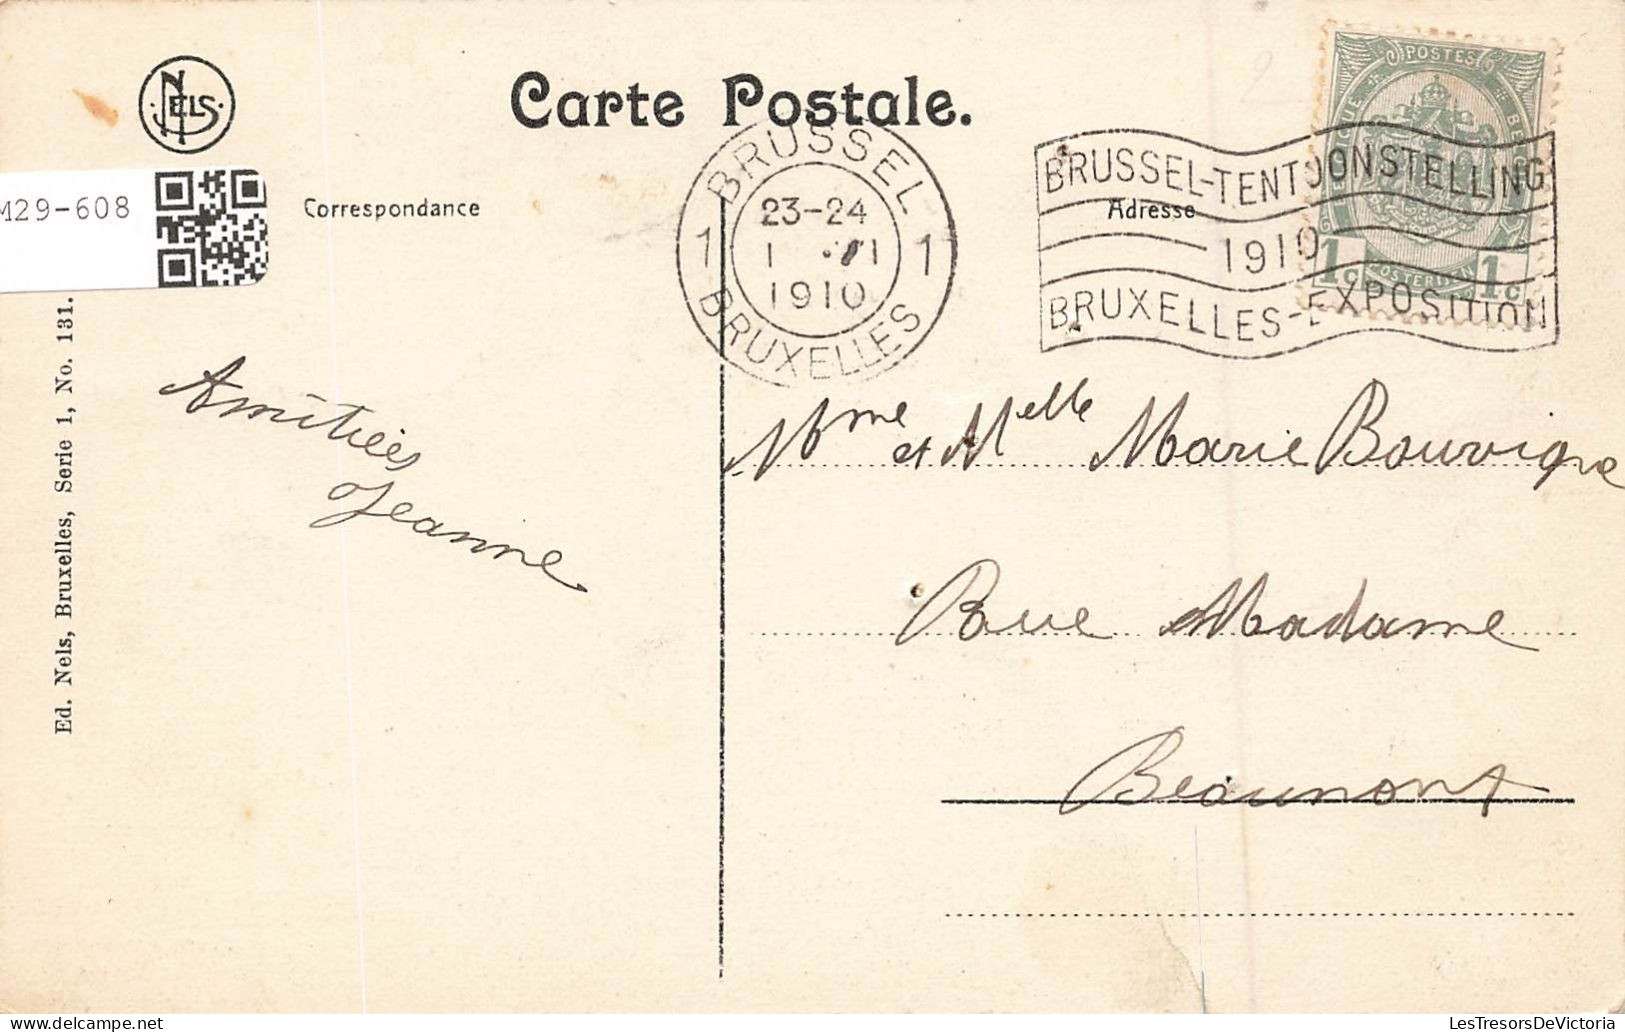 NELS
Carte Postale.
M29-608
Correspondance
Adresse
BRUSSEL
23-24
1 VI
1910
1 1
BRUXELLES
BRUSSEL-TENTOONSTELLING
1910
BRUXELLES-EXPOSITION
POSTES
1c POSTERIJEN 1c
Ed. Nels, Bruxelles, Serie 1, No. 131.
Amitiées
Jeanne
Mme et Melle Marie Bouvigne
Rue Madame
Beaumont
LesTresorsDeVictoria